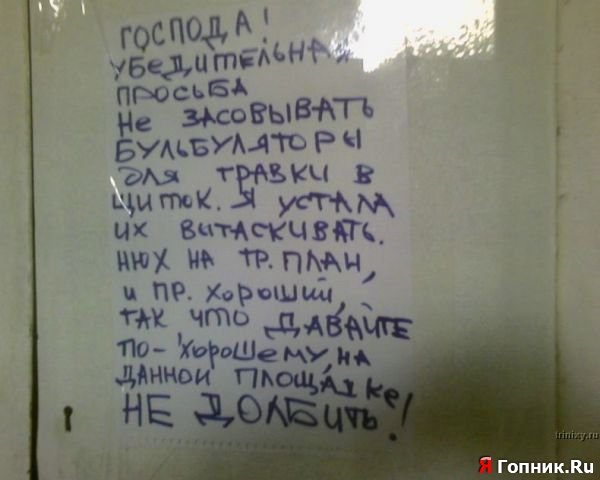 ГОСПОДА!
УБЕДИТЕЛЬНАЯ
ПРОСЬБА
НЕ ЗАСОВЫВАТЬ
БУЛЬБУЛЯТОРЫ
ДЛЯ ТРАВКИ В
ЩИТОК. Я УСТАЛА
ИХ ВЫТАСКИВАТЬ.
НЮХ НА ТР. ПЛАН,
И ПР. ХОРОШИЙ,
ТАК ЧТО ДАВАЙТЕ
ПО-ХОРОШЕМУ, НА
ДАННОЙ ПЛОЩАДКЕ
НЕ ДОЛБИТЬ!
trinixy.ru
Я Гопник.Ru